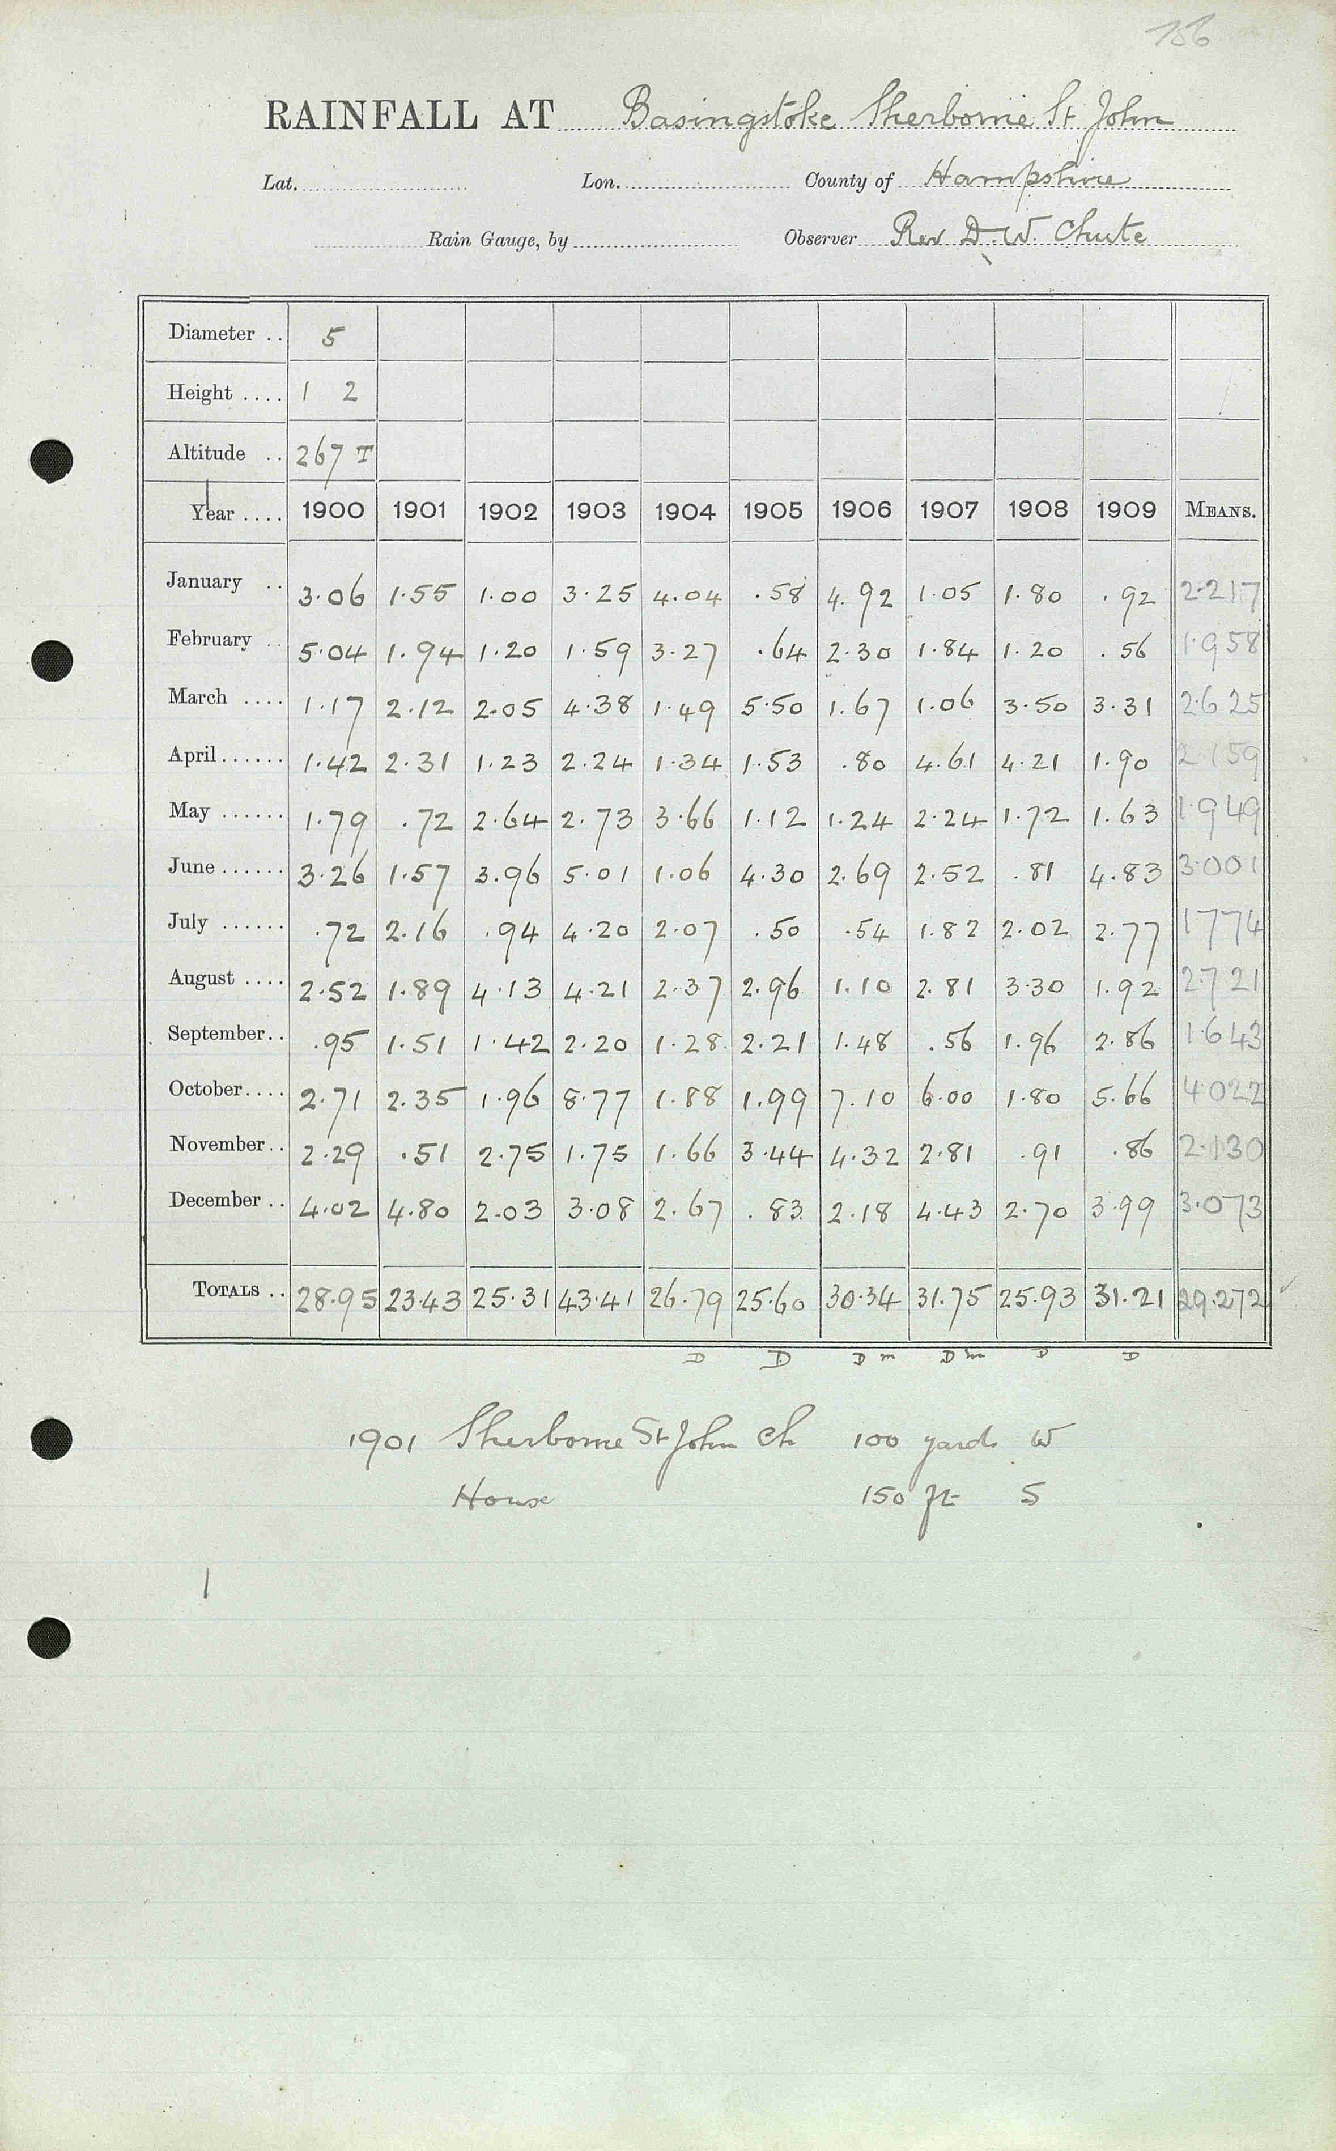 106
RAINFALL AT Basingstoke Sherborne St John
Lat. Lon. County of Hampshire
Rain Gauge, by Observer Rev D. W. Chute
Diameter .. 5
Height .... 1 2
Altitude .. 267 T
Year .... 1900 1901 1902 1903 1904 1905 1906 1907 1908 1909 MEANS.
January .. 3.06 1.55 1.00 3.25 4.04 .58 4.92 1.05 1.80 .92 2.217
February .. 5.04 1.94 1.20 1.59 3.27 .64 2.30 1.84 1.20 .56 1.958
March .... 1.17 2.12 2.05 4.38 1.49 5.50 1.67 1.06 3.50 3.31 2.625
April ...... 1.42 2.31 1.23 2.24 1.34 1.53 .80 4.61 4.21 1.90 2.159
May ...... 1.79 .72 2.64 2.73 3.66 1.12 1.24 2.24 1.72 1.63 1.949
June ...... 3.26 1.57 3.96 5.01 1.06 4.30 2.69 2.52 .81 4.83 3.001
July ...... .72 2.16 .94 4.20 2.07 .50 .54 1.82 2.02 2.77 1774
August .... 2.52 1.89 4.13 4.21 2.37 2.96 1.10 2.81 3.30 1.92 2.721
September.. .95 1.51 1.42 2.20 1.28 2.21 1.48 .56 1.96 2.86 1.643
October.... 2.71 2.35 1.96 8.77 1.88 1.99 7.10 6.00 1.80 5.66 4022
November.. 2.29 .51 2.75 1.75 1.66 3.44 4.32 2.81 .91 .86 2.130
December .. 4.02 4.80 2.03 3.08 2.67 .83 2.18 4.43 2.70 3.99 3.073
TOTALS .. 28.95 23.43 25.31 43.41 26.79 25.60 30.34 31.75 25.93 31.21 29.272
D D D m D m D D
1901 Sherborne St John Ch 100 yards W
House 150 ft S